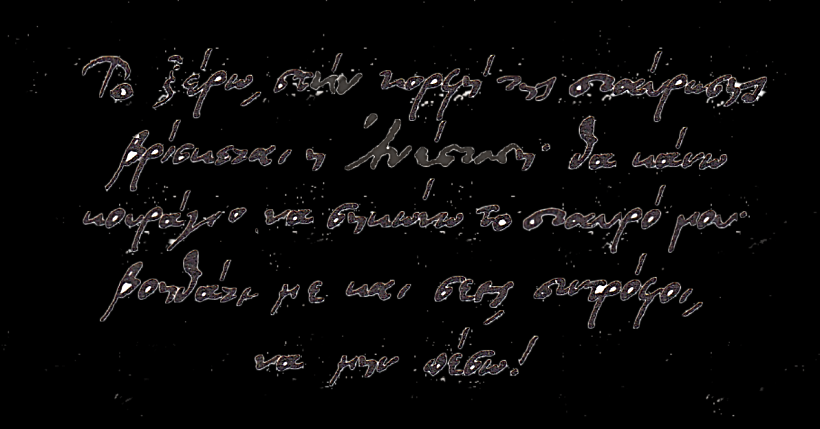 Το ξέρω, στήν κορφή της σταύρωσης
βρίσκεται η Ἀνάσταση· θα κάνω
κουράγιο να σηκώνω το σταυρό μου·
βοηθάτε με και σεις, συντρόφοι,
να μην πέσω!